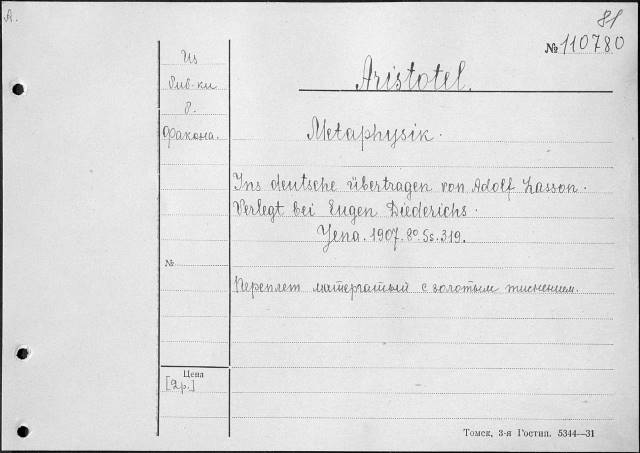 A.
81
№ 110780
Из
Aristotel.
Metaphysik.
Ins deutsche übertragen von Adolf Lasson.
Verlegt bei Eugen Diederichs.
Jena. 1907. 8º. Ss. 319.
№
Переплет матерчатый с золотым тиснением.
Цена
[2р.]
Томск, 3-я Гостип. 5344—31